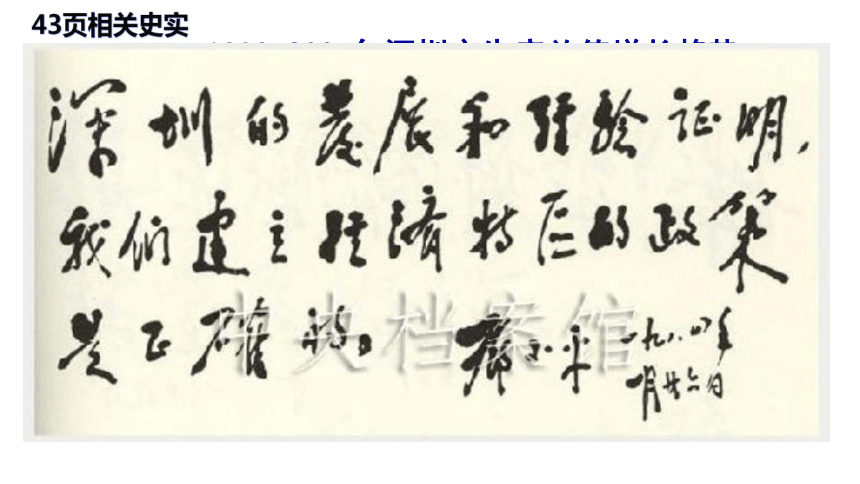 43页相关史实
深圳的发展和经验证明，
我们建立经济特区的政策
是正确的。
邓小平
一九八四年
一月廿六日
中央档案馆